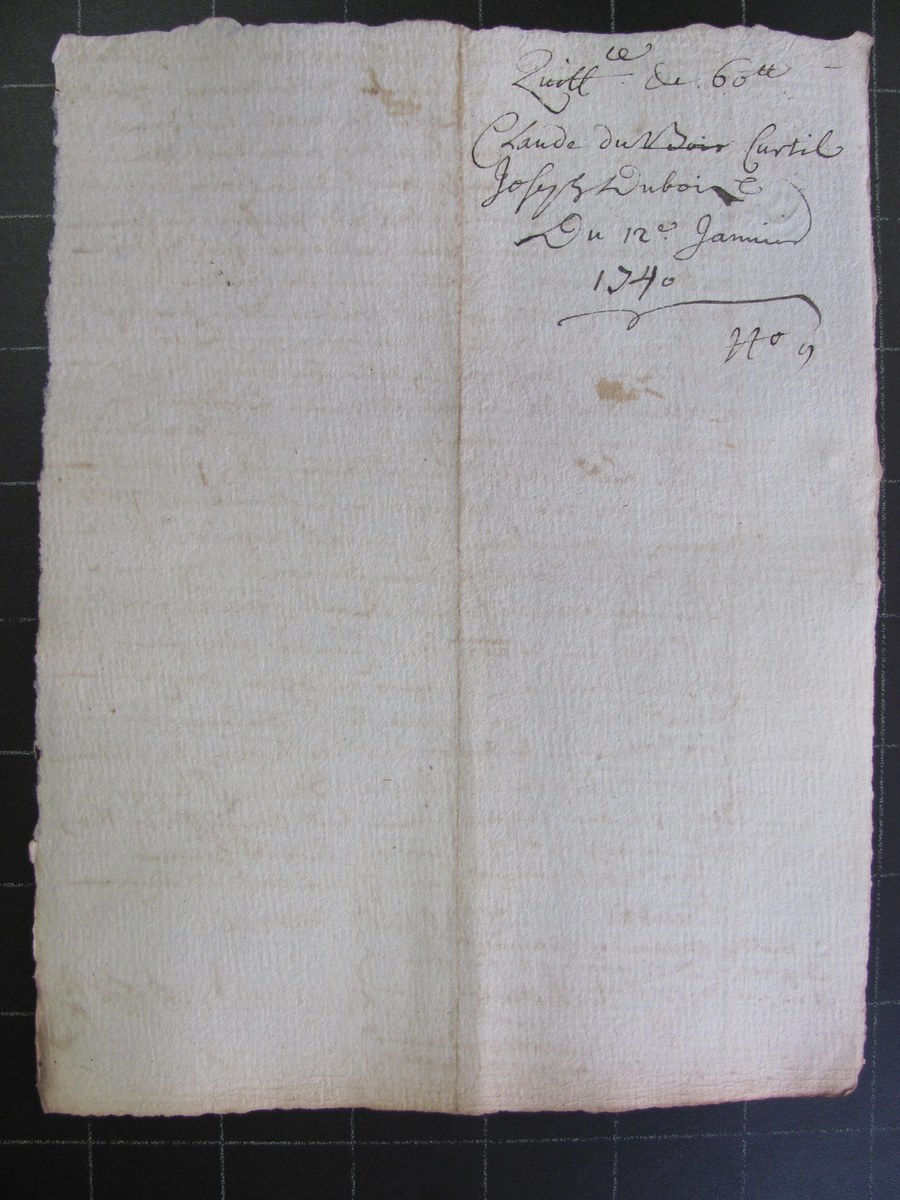 Quitt.ce de 60tt
Claude du Bois Curtil
Joseph Dubois
Du 12e Janvier
1740
No 9